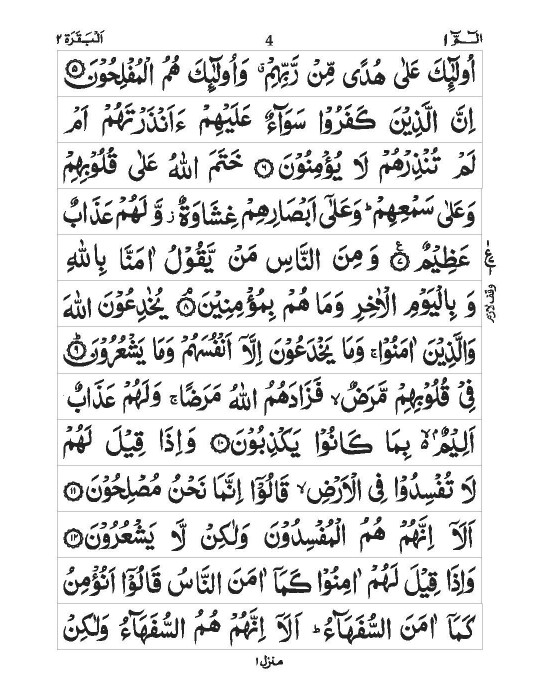 الٓمّٓ ١ 4 اَلْبَقَرَة ٢
اُولٰٓئِكَ عَلٰى هُدًى مِّنْ رَّبِّهِمْ ۗ وَاُولٰٓئِكَ هُمُ الْمُفْلِحُوْنَ ۝٥
اِنَّ الَّذِيْنَ كَفَرُوْا سَوَآءٌ عَلَيْهِمْ ءَاَنْذَرْتَهُمْ اَمْ
لَمْ تُنْذِرْهُمْ لَا يُؤْمِنُوْنَ ۝٦ خَتَمَ اللّٰهُ عَلٰى قُلُوْبِهِمْ
وَعَلٰى سَمْعِهِمْ ؕ وَعَلٰٓى اَبْصَارِهِمْ غِشَاوَةٌ ز وَّ لَهُمْ عَذَابٌ
عَظِيْمٌ ۝٧ ع وَمِنَ النَّاسِ مَنْ يَّقُوْلُ اٰمَنَّا بِاللّٰهِ
وَ بِالْيَوْمِ الْاٰخِرِ وَمَا هُمْ بِمُؤْمِنِيْنَ ۝٨ۘ يُخٰدِعُوْنَ اللّٰهَ
وقف لازم
وَالَّذِيْنَ اٰمَنُوْا ۚ وَمَا يَخْدَعُوْنَ اِلَّآ اَنْفُسَهُمْ وَمَا يَشْعُرُوْنَ ۝٩ؕ
فِيْ قُلُوْبِهِمْ مَّرَضٌ ۙ فَزَادَهُمُ اللّٰهُ مَرَضًا ۚ وَلَهُمْ عَذَابٌ
اَلِيْمٌۢ ۙ۬ بِمَا كَانُوْا يَكْذِبُوْنَ ۝١٠ وَاِذَا قِيْلَ لَهُمْ
لَا تُفْسِدُوْا فِى الْاَرْضِ ۙ قَالُوْٓا اِنَّمَا نَحْنُ مُصْلِحُوْنَ ۝١١
اَلَآ اِنَّهُمْ هُمُ الْمُفْسِدُوْنَ وَلٰكِنْ لَّا يَشْعُرُوْنَ ۝١٢
وَاِذَا قِيْلَ لَهُمْ اٰمِنُوْا كَمَآ اٰمَنَ النَّاسُ قَالُوْٓا اَنُؤْمِنُ
كَمَآ اٰمَنَ السُّفَهَآءُ ؕ اَلَآ اِنَّهُمْ هُمُ السُّفَهَآءُ وَلٰكِنْ
منزل ١